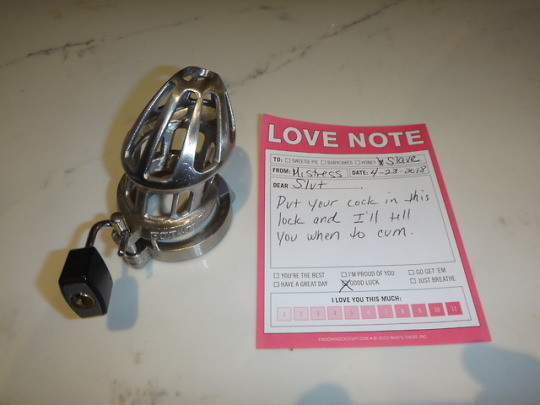 LOVE NOTE
TO: SWEETIE PIE BABYCAKES HONEY X Slave
FROM: Mistress DATE: 4-23-2018
DEAR Slut
Put your cock in this
lock and I'll tell
you when to cum.
YOU'RE THE BEST I'M PROUD OF YOU GO GET 'EM
HAVE A GREAT DAY X GOOD LUCK JUST BREATHE
I LOVE YOU THIS MUCH:
1 2 3 4 5 6 7 8 9 10 11